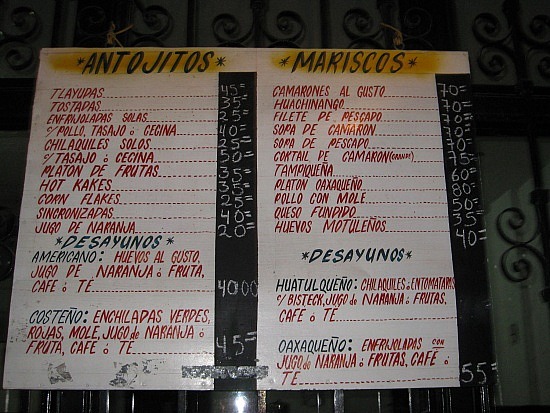 *ANTOJITOS*
TLAYUDAS 45=
TOSTADAS 35=
ENFRIJOLADAS SOLAS 25=
c/POLLO, TASAJO ó CECINA 40=
CHILAQUILES SOLOS 25=
c/TASAJO ó CECINA 50=
PLATON DE FRUTAS 35=
HOT KAKES 35=
CORN FLAKES 25=
SINCRONIZADAS 40=
JUGO DE NARANJA 20=
*DESAYUNOS*
AMERICANO: HUEVOS AL GUSTO,
JUGO DE NARANJA ó FRUTA,
CAFE ó TE 4000
COSTEÑO: ENCHILADAS VERDES,
ROJAS, MOLE, JUGO de NARANJA ó
FRUTA, CAFE ó TE 45=
*MARISCOS*
CAMARONES AL GUSTO 70=
HUACHINANGO 70=
FILETE DE PESCADO
SOPA DE CAMARON
SOPA DE PESCADO 70=
COKTAIL DE CAMARON(GRANDE) 75
TAMPIQUEÑA 60=
PLATON OAXAQUEÑO 80=
POLLO CON MOLE 50=
QUESO FUNDIDO 35=
HUEVOS MOTULEÑOS 40=
*DESAYUNOS*
HUATULQUEÑO: CHILAQUILES ó ENTOMATADAS
c/ BISTECK, JUGO de NARANJA ó FRUTAS,
CAFE ó TE
OAXAQUEÑO: ENFRIJOLADAS CON
JUGO de NARANJA ó FRUTAS, CAFÉ ó
TE 55=